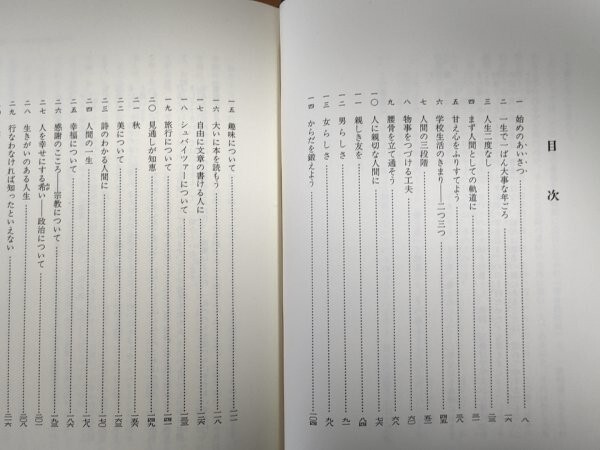 目次
一 始めのあいさつ 八
二 一生で一ばん大事な年ごろ 一六
三 人生二度なし 二三
四 まず人間としての軌道に 三一
五 甘え心をふりすてよう 三八
六 学校生活のきまり——二つ三つ 四五
七 人間の三段階 五三
八 物事をつづける工夫 六一
九 腰骨を立て通そう 六八
一〇 人に親切な人間に 七六
一一 親しき友を 八四
一二 男らしさ 九一
一三 女らしさ 九八
一四 からだを鍛えよう 一〇四
一五 趣味について 一一一
一六 大いに本を読もう 一一八
一七 自由に文章の書ける人に 一二六
一八 シュバイツァーについて 一三三
一九 旅行について 一四一
二〇 見通しが知恵 一四九
二一 秋 一五六
二二 美について 一六三
二三 詩のわかる人間に 一七〇
二四 人間の一生 一七九
二五 幸福について 一八六
二六 感謝のこころ——宗教について 一九三
二七 人を幸せにする希い——政治について 二〇一
二八 生きがいのある人生 二〇八
二九 行なわなければ知ったといえない 二一六